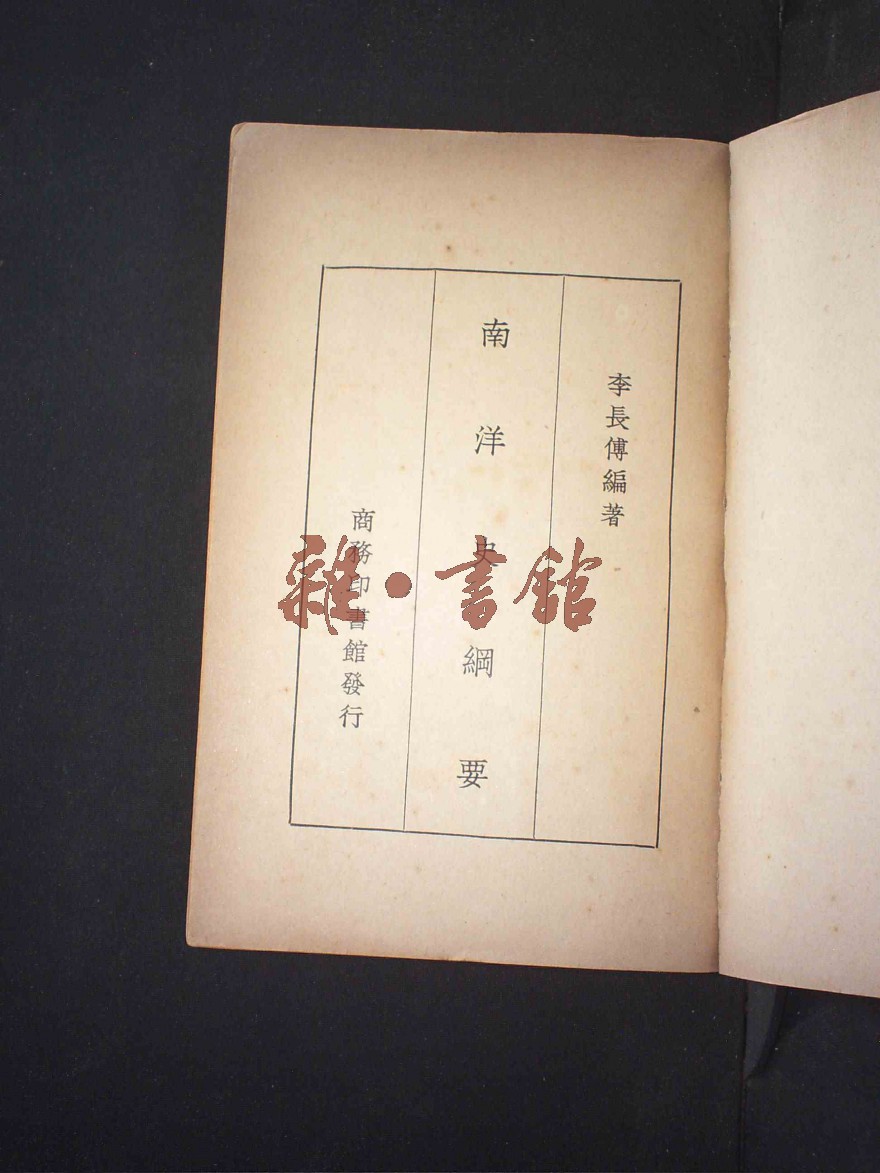 李長傅編著
南洋史綱要
商務印書館發行
雜·書館